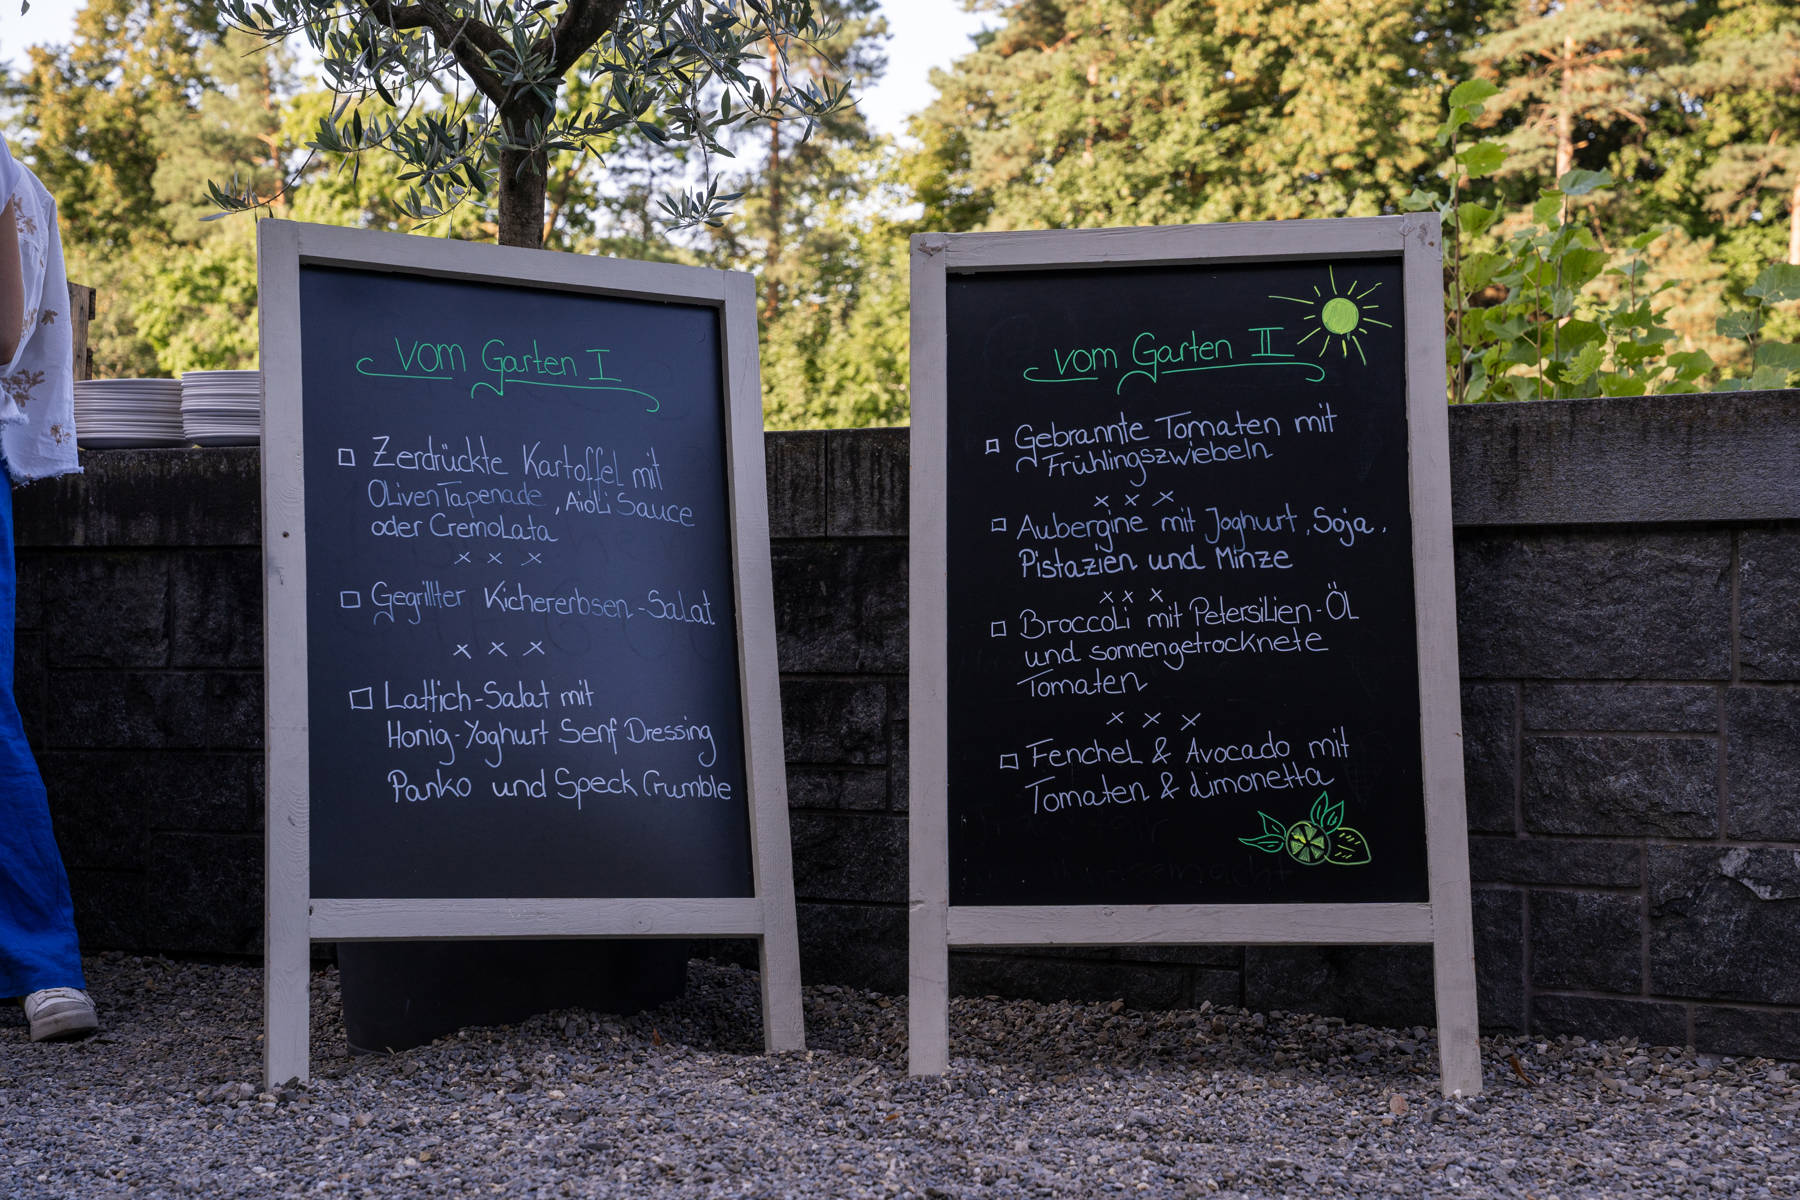 Vom Garten I
Zerdrückte Kartoffel mit
Oliven Tapenade, Aioli Sauce
oder Cremolata
x x x
Gegrillter Kichererbsen-Salat
x x x
Lattich-Salat mit
Honig-Yoghurt Senf Dressing
Panko und Speck Crumble
Vom Garten II
Gebrannte Tomaten mit
Frühlingszwiebeln
x x x
Aubergine mit Joghurt, Soja,
Pistazien und Minze
x x x
Broccoli mit Petersilien-Öl
und sonnengetrocknete
Tomaten
x x x
Fenchel & Avocado mit
Tomaten & Limonetta